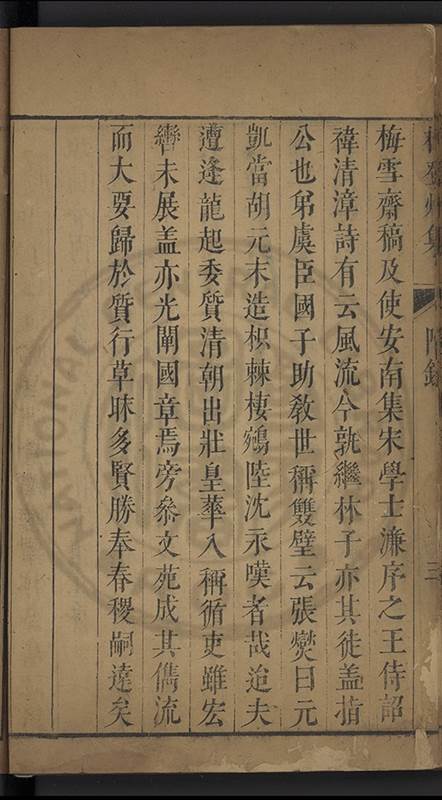 梅雪齋稿及使安南集宋學士濂序之王侍詔
禕清漳詩有云風流今孰繼林子亦其徒盖指
公也弟虞臣國子助教世稱雙璧云張燮曰元
凱當胡元末造枳棘棲鵷陸沈永嘆者哉迨夫
遭逢龍起委質清朝出壯皇華入稱循吏雖宏
轡未展盖亦光闡國章焉旁叅文苑成其儁流
而大要歸於質行草昧多賢勝奉春稷嗣遠矣
州集
附錄
三